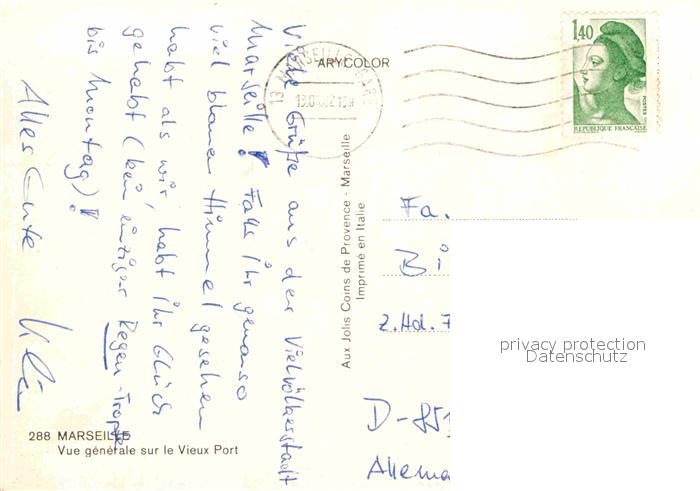 Viele Grüße aus der Vielvölkerstadt
Marseille! Falls ihr genauso
viel blauen Himmel gesehen
habt als wir, habt ihr Glück
gehabt (kein einziger Regen-Tropfen
bis Montag)!
Alles Gute
288 MARSEILLE
Vue générale sur le Vieux Port
ARYCOLOR
Aux Jolis Coins de Provence - Marseille
Imprimé en Italie
13 MARSEILLE
1,40
POSTES
REPUBLIQUE FRANÇAISE
Fa.
Bi
z.Hd. F
D-851
Allema
privacy protection
Datenschutz